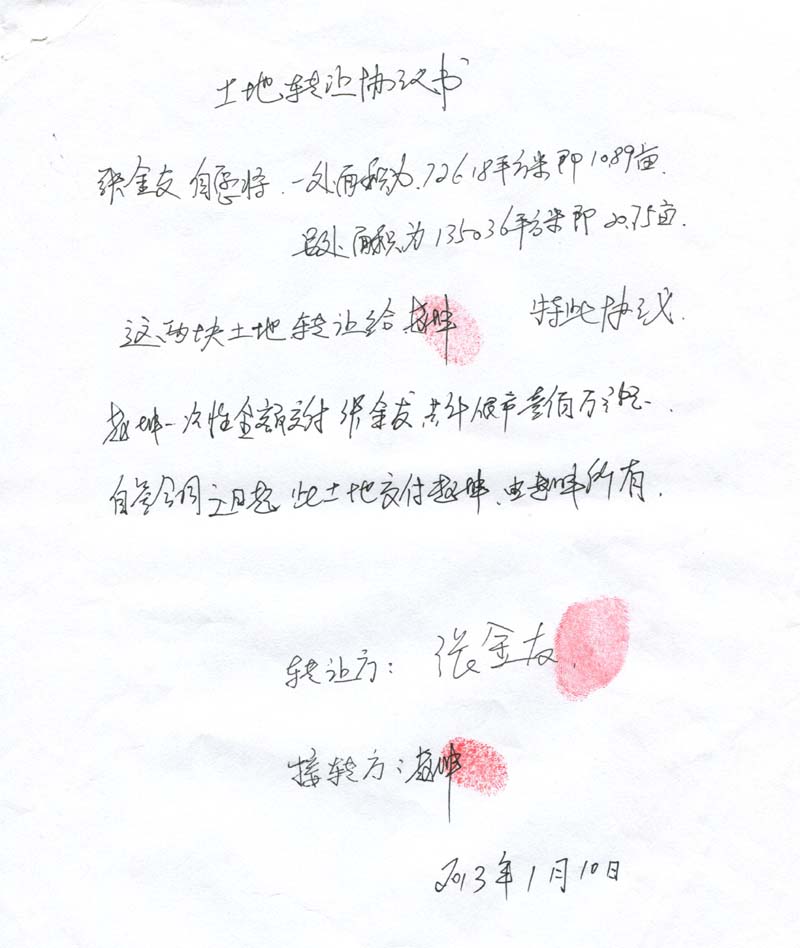 土地转让协议书
张金友自愿将.一处面积为.7261.8平方米即10.89亩.
另处面积为135036平方米即20.75亩.
这两块土地转让给赵坤 特此协议.
赵坤一次性全额交付张金友,共计人民币壹佰万元.
自签合同之日起 此土地交付赵坤、由赵坤所有.
转让方: 张金友
接转方: 赵坤
2013年1月10日